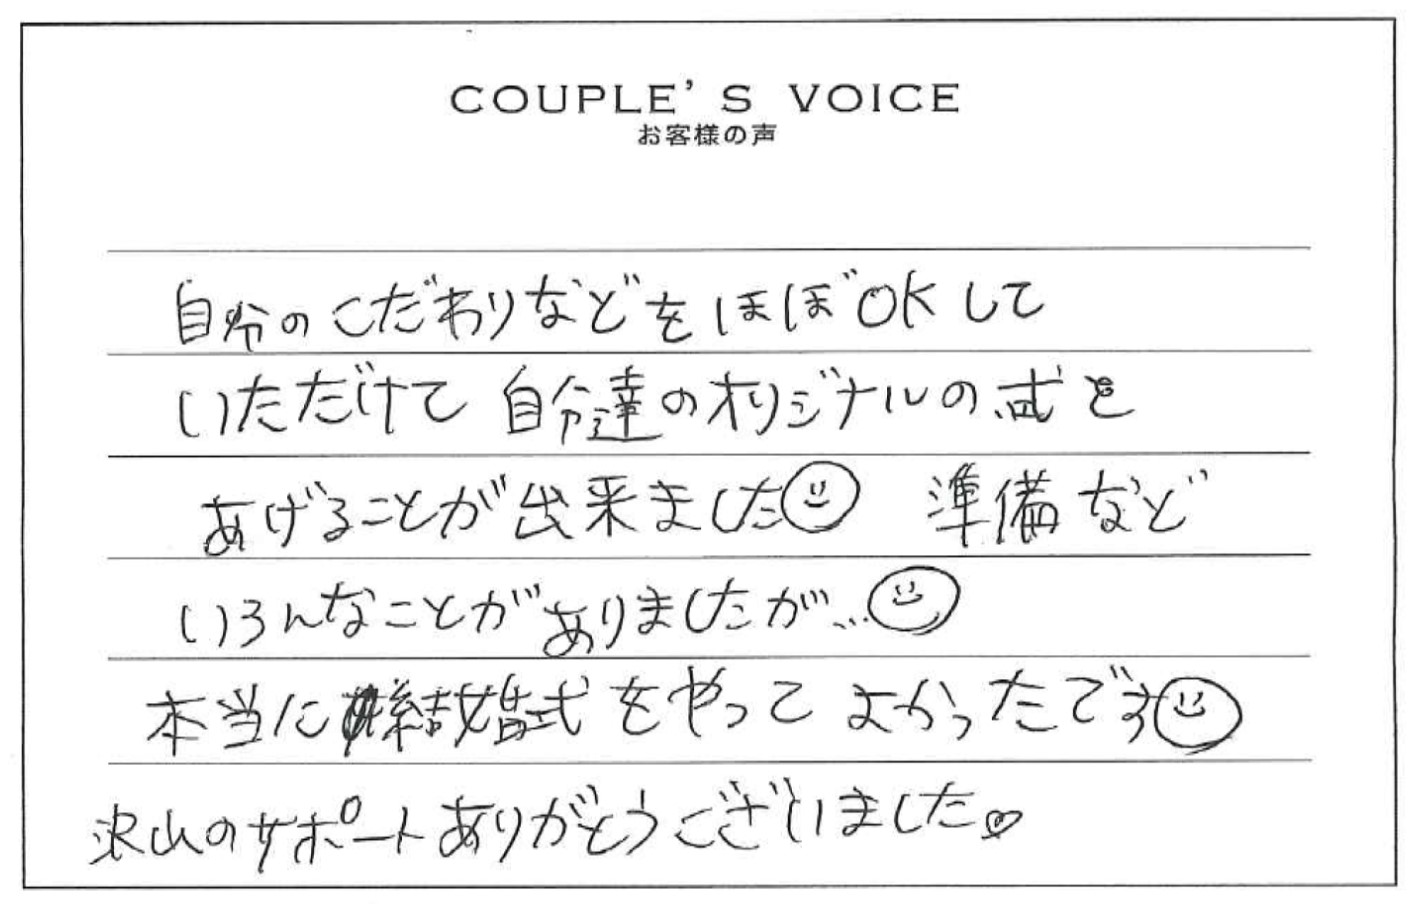 COUPLE'S VOICE
お客様の声
自分のこだわりなどをほぼOKして
いただけて 自分達のオリジナルの式を
あげることが出来ました☺ 準備など
いろんなことがありましたが…☺
本当に結婚式をやってよかったです☺
沢山のサポートありがとうございました♡